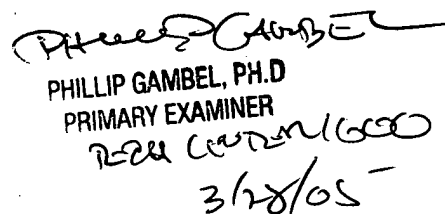 PHILLIP GAMBEL
PHILLIP GAMBEL, PH.D
PRIMARY EXAMINER
TECH CENTER 1600
3/28/05